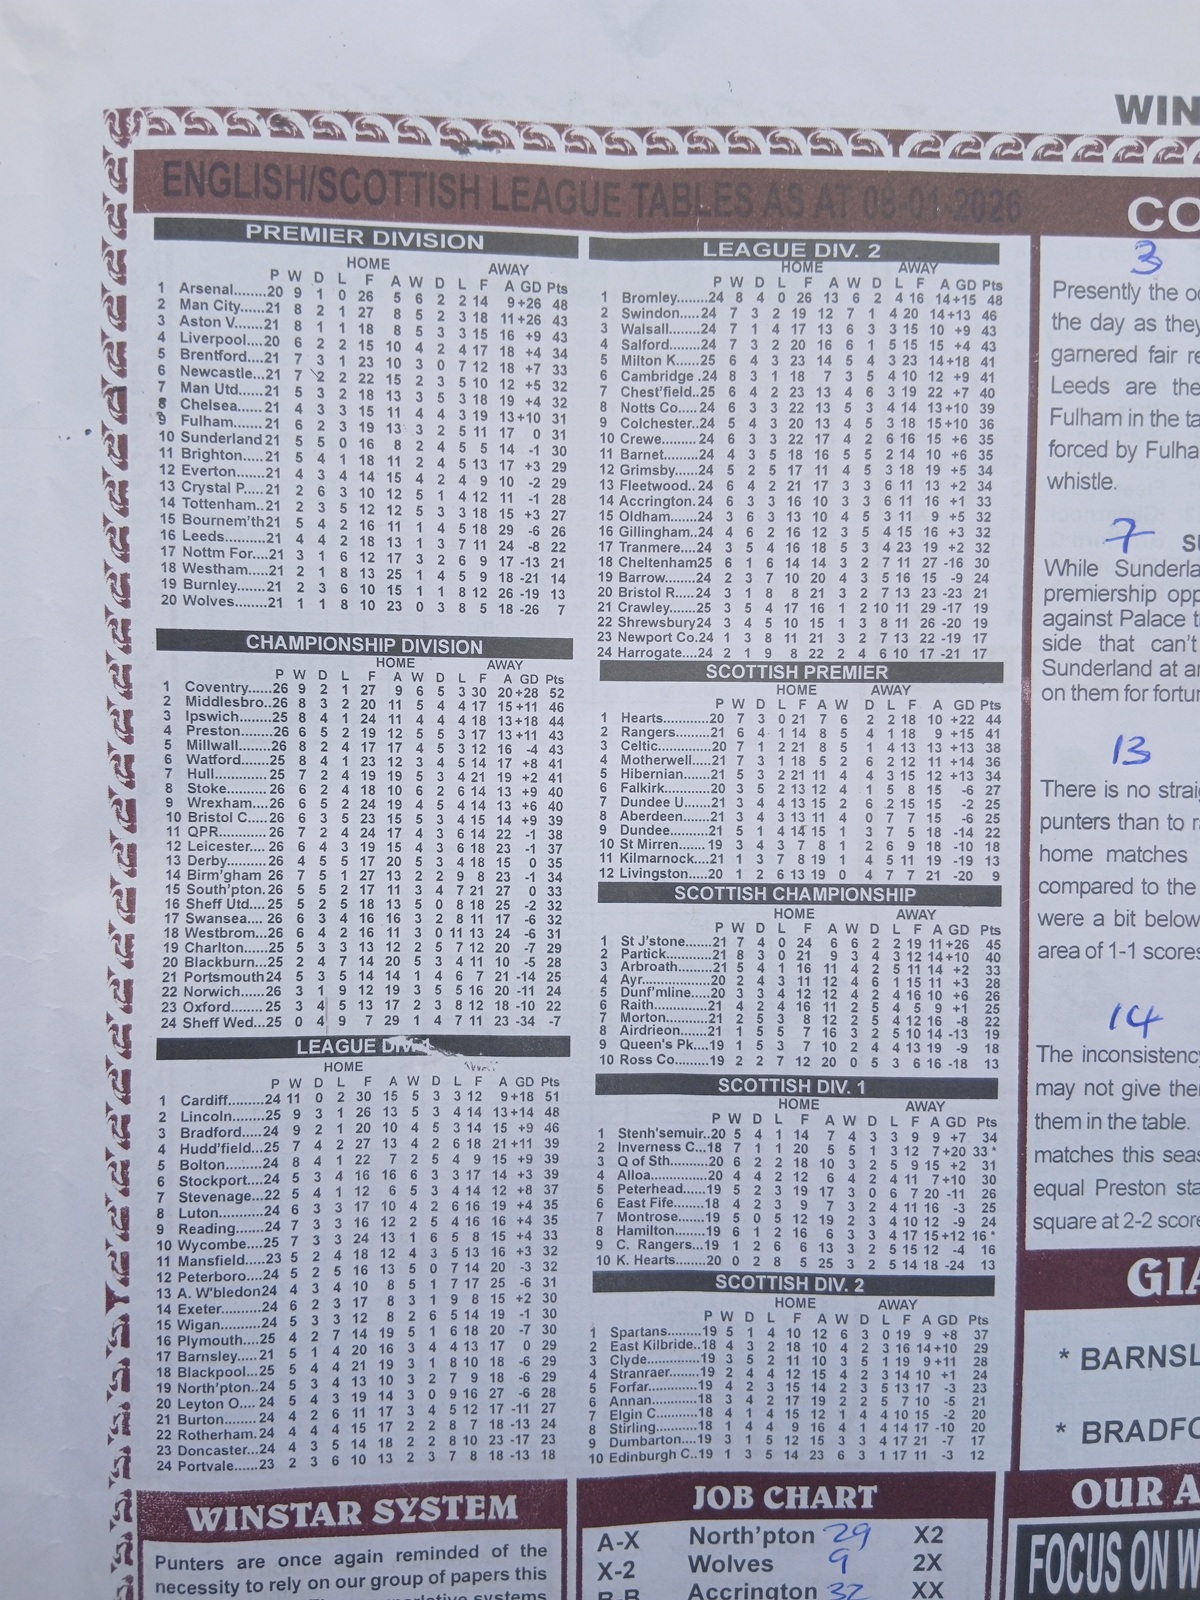 WIN
ENGLISH/SCOTTISH LEAGUE TABLES AS AT 08-01-2026
PREMIER DIVISION
HOME AWAY
P W D L F A W D L F A GD Pts
1 Arsenal........20 9 1 0 26 5 6 2 2 14 9 +26 48
2 Man City.....21 8 2 1 27 8 5 2 3 18 11 +26 43
3 Aston V.......21 8 1 1 18 8 5 3 3 15 16 +9 43
4 Liverpool.....20 6 2 2 15 10 4 2 4 17 18 +4 34
5 Brentford.....21 7 3 1 23 10 3 0 7 12 18 +7 33
6 Newcastle...21 7 2 2 22 15 2 3 5 10 12 +5 32
7 Man Utd......21 5 3 2 18 13 3 5 3 18 19 +4 32
8 Chelsea.......21 4 3 3 15 11 4 4 3 19 13 +10 31
9 Fulham........21 6 2 3 19 13 3 2 5 11 17 0 31
10 Sunderland 21 5 5 0 16 8 2 4 5 5 14 -1 30
11 Brighton.....21 5 4 1 18 11 2 4 5 13 17 +3 29
12 Everton......21 4 3 4 14 15 4 2 4 9 10 -2 29
13 Crystal P....21 2 6 3 10 12 5 1 4 12 11 -1 28
14 Tottenham..21 2 3 5 12 12 5 3 3 18 15 +3 27
15 Bournem'th21 5 4 2 16 11 1 4 5 18 29 -6 26
16 Leeds........21 4 4 2 18 13 1 3 7 11 24 -8 22
17 Nottm For....21 3 1 6 12 17 3 2 6 9 17 -13 21
18 Westham....21 2 1 8 13 25 1 4 5 9 18 -21 14
19 Burnley......21 2 3 6 10 15 1 1 8 12 26 -19 13
20 Wolves.......21 1 1 8 10 23 0 3 8 5 18 -26 7
CHAMPIONSHIP DIVISION
HOME AWAY
P W D L F A W D L F A GD Pts
1 Coventry......26 9 2 1 27 9 6 5 3 30 20 +28 52
2 Middlesbro..26 8 3 2 20 11 5 4 4 17 15 +11 46
3 Ipswich.......25 8 4 1 24 11 4 4 4 18 13 +18 44
4 Preston.......26 6 5 2 19 12 5 5 3 17 13 +11 43
5 Millwall.......26 8 2 4 17 17 4 5 3 12 16 -4 43
6 Watford......25 8 4 1 23 12 3 4 5 14 17 +8 41
7 Hull............25 7 2 4 19 19 5 3 4 21 19 +2 41
8 Stoke.........26 6 2 4 18 10 6 2 6 14 13 +9 40
9 Wrexham....26 6 5 2 24 19 4 5 4 14 13 +6 40
10 Bristol C.....26 6 3 5 23 15 5 3 4 15 14 +9 39
11 QPR..........26 7 2 4 24 17 4 3 6 14 22 -1 38
12 Leicester....26 6 4 3 19 15 4 3 6 18 23 -1 37
13 Derby........26 4 5 5 17 20 5 3 4 18 15 0 35
14 Birm'gham 26 7 5 1 27 13 2 2 9 8 23 -1 34
15 South'pton.26 5 5 2 17 11 3 4 7 21 27 0 33
16 Sheff Utd....25 5 2 5 18 13 5 0 8 18 25 -2 32
17 Swansea....26 6 3 4 16 16 3 2 8 11 17 -6 32
18 Westbrom...26 6 4 2 16 11 3 0 11 13 24 -6 31
19 Charlton.....25 5 3 3 13 12 2 5 7 12 20 -7 29
20 Blackburn...25 2 4 7 14 20 5 3 4 11 10 -5 28
21 Portsmouth24 5 3 5 14 14 1 4 6 7 21 -14 25
22 Norwich.....26 3 1 9 12 19 3 5 5 16 20 -11 24
23 Oxford.......25 3 4 5 13 17 2 3 8 12 18 -10 22
24 Sheff Wed...25 0 4 9 7 29 1 4 7 11 23 -34 -7
LEAGUE DIV 1
HOME
P W D L F A W D L F A GD Pts
1 Cardiff........24 11 0 2 30 15 5 3 3 12 9 +18 51
2 Lincoln.......25 9 3 1 26 13 5 3 4 14 13 +14 48
3 Bradford.....24 9 2 1 20 10 4 5 3 14 15 +9 46
4 Hudd'field...25 7 4 2 27 13 4 2 6 18 21 +11 39
5 Bolton........24 8 4 1 22 7 2 5 4 9 15 +9 39
6 Stockport....24 5 3 4 16 16 6 3 3 17 14 +3 39
7 Stevenage...22 5 4 1 12 6 5 3 4 14 12 +8 37
8 Luton.........24 6 3 3 17 10 4 2 6 16 19 +4 35
9 Reading......24 7 3 3 16 12 2 5 4 16 16 +4 35
10 Wycombe...25 7 3 3 24 13 1 6 5 8 15 +4 33
11 Mansfield....23 5 2 4 18 12 4 3 5 13 16 +3 32
12 Peterboro...24 5 2 5 16 13 5 0 7 14 20 -3 32
13 A. W'bledon24 4 3 4 10 8 5 1 7 17 25 -6 31
14 Exeter.......24 6 2 3 17 8 3 1 9 8 15 +2 30
15 Wigan.......24 5 3 3 12 8 2 6 5 14 19 -1 30
16 Plymouth....25 4 2 7 14 19 5 1 6 18 20 -7 30
17 Barnsley....21 5 1 4 20 16 3 4 4 13 17 0 29
18 Blackpool...25 5 4 4 21 19 3 1 8 10 18 -6 29
19 North'pton..24 5 3 4 13 10 3 2 7 9 18 -6 29
20 Leyton O....24 5 4 3 19 14 3 0 9 16 27 -6 28
21 Burton.......24 4 2 6 11 17 3 4 5 12 17 -11 27
22 Rotherham.24 4 4 4 15 17 2 2 8 7 18 -13 24
23 Doncaster...24 4 3 5 14 18 2 2 8 10 23 -17 23
24 Portvale......23 2 3 6 10 13 2 3 7 8 18 -13 18
LEAGUE DIV. 2
HOME AWAY
P W D L F A W D L F A GD Pts
1 Bromley........24 8 4 0 26 13 6 2 4 16 14 +15 48
2 Swindon.......24 7 3 2 19 12 7 1 4 20 14 +13 46
3 Walsall.........24 7 1 4 17 13 6 3 3 15 10 +9 43
4 Salford.........24 7 3 2 20 16 6 1 5 15 15 +4 43
5 Milton K........25 6 4 3 23 14 5 4 3 23 14 +18 41
6 Cambridge .24 8 3 1 18 7 3 5 4 10 12 +9 41
7 Chest'field...25 6 4 2 23 13 4 6 3 19 22 +7 40
8 Notts Co......24 6 3 3 22 13 5 3 4 14 13 +10 39
9 Colchester...24 5 4 3 20 13 4 5 3 18 15 +10 36
10 Crewe........24 6 3 3 22 17 4 2 6 16 15 +6 35
11 Barnet........24 4 3 5 18 16 5 5 2 14 10 +6 35
12 Grimsby.....24 5 2 5 17 11 4 5 3 18 19 +5 34
13 Fleetwood..24 6 4 2 21 17 3 3 6 11 13 +2 34
14 Accrington.24 6 3 3 16 10 3 3 6 11 16 +1 33
15 Oldham......24 3 6 3 13 10 4 5 3 11 9 +5 32
16 Gillingham..24 4 6 2 16 12 3 5 4 15 16 +3 32
17 Tranmere...24 3 5 4 16 18 5 3 4 23 19 +2 32
18 Cheltenham25 6 1 6 14 14 3 2 7 11 27 -16 30
19 Barrow.......24 2 3 7 10 20 4 3 5 16 15 -9 24
20 Bristol R.....24 3 1 8 8 21 3 2 7 13 23 -23 21
21 Crawley......25 3 5 4 17 16 1 2 10 11 29 -17 19
22 Shrewsbury24 3 4 5 10 15 1 3 8 11 26 -20 19
23 Newport Co.24 1 3 8 11 21 3 2 7 13 22 -19 17
24 Harrogate....24 2 1 9 8 22 2 4 6 10 17 -21 17
SCOTTISH PREMIER
HOME AWAY
P W D L F A W D L F A GD Pts
1 Hearts............20 7 3 0 21 7 6 2 2 18 10 +22 44
2 Rangers..........21 6 4 1 14 8 5 4 1 18 9 +15 41
3 Celtic.............20 7 1 2 21 8 5 1 4 13 13 +13 38
4 Motherwell......21 7 3 1 18 5 2 6 2 12 11 +14 36
5 Hibernian........21 5 3 2 21 11 4 4 3 15 12 +13 34
6 Falkirk............20 3 5 2 13 12 4 1 5 8 15 -6 27
7 Dundee U.......21 3 4 4 13 15 2 6 2 15 15 -2 25
8 Aberdeen........21 3 4 3 13 11 4 0 7 7 15 -6 25
9 Dundee..........21 5 1 4 14 15 1 3 7 5 18 -14 22
10 St Mirren........19 3 4 3 7 8 1 2 6 9 18 -10 18
11 Kilmarnock....21 1 3 7 8 19 1 4 5 11 19 -19 13
12 Livingston.....20 1 2 6 13 19 0 4 7 7 21 -20 9
SCOTTISH CHAMPIONSHIP
HOME AWAY
P W D L F A W D L F A GD Pts
1 St J'stone......21 7 4 0 24 6 6 2 2 19 11 +26 45
2 Partick...........21 8 3 0 21 9 3 4 3 12 14 +10 40
3 Arbroath........21 5 4 1 16 11 4 2 5 11 14 +2 33
4 Ayr................20 2 4 3 11 12 4 6 1 15 11 +3 28
5 Dunf'mline.....20 3 3 4 12 12 4 2 4 16 10 +6 26
6 Raith.............21 4 2 4 16 11 2 5 4 5 9 +1 25
7 Morton...........21 2 5 3 8 12 2 5 4 12 16 -8 22
8 Airdrieon........21 1 5 5 7 16 3 2 5 10 14 -13 19
9 Queen's Pk....19 1 5 3 7 10 2 4 4 13 19 -9 18
10 Ross Co........19 2 2 7 12 20 0 5 3 6 16 -18 13
SCOTTISH DIV. 1
HOME AWAY
P W D L F A W D L F A GD Pts
1 Stenh'semuir..20 5 4 1 14 7 4 3 3 9 9 +7 34
2 Inverness C...18 7 1 1 20 5 5 1 3 12 7 +20 33 *
3 Q of Sth.........20 6 2 2 18 10 3 2 5 9 15 +2 31
4 Alloa.............20 4 4 2 12 6 4 2 4 11 7 +10 30
5 Peterhead......19 5 2 3 19 17 3 0 6 7 20 -11 26
6 East Fife........18 4 2 3 9 7 3 2 4 11 16 -3 25
7 Montrose.......19 5 0 5 12 19 2 3 4 10 12 -9 24
8 Hamilton........19 6 1 2 16 6 3 3 4 17 15 +12 16 *
9 C. Rangers....19 1 2 6 6 13 3 2 5 15 12 -4 16
10 K. Hearts......20 0 2 8 5 25 3 2 5 14 18 -24 13
SCOTTISH DIV. 2
HOME AWAY
P W D L F A W D L F A GD Pts
1 Spartans.........19 5 1 4 10 12 6 3 0 19 9 +8 37
2 East Kilbride..18 4 3 2 18 10 4 2 3 16 14 +10 29
3 Clyde.............19 3 5 2 11 10 3 5 1 19 9 +11 28
4 Stranraer.......19 2 4 4 12 15 4 2 3 14 10 +1 24
5 Forfar............19 4 2 3 15 14 2 3 5 13 17 -3 23
6 Annan............18 3 4 2 17 19 2 2 5 7 10 -5 21
7 Elgin C..........18 4 1 4 15 12 1 4 4 10 15 -2 20
8 Stirling..........18 1 4 4 9 16 4 1 4 14 17 -10 20
9 Dumbarton....19 3 1 5 12 15 3 3 4 17 21 -7 17
10 Edinburgh C..19 1 3 5 14 23 6 3 1 17 11 -3 12
CO
3
Presently the
the day as they
garnered fair
Leeds are the
Fulham in the
forced by
whistle.
7
While
premiership
against Palace
side that can't
Sunderland at
on them for
13
There is no
punters than to
home matches
compared to the
were a bit below
area of 1-1
14
The inconsistency
may not give them
them in the table.
matches this
equal Preston
square at 2-2
GIA
* BARNSL
* BRADFO
OUR A
FOCUS ON W
WINSTAR SYSTEM
Punters are once again reminded of the
necessity to rely on our group of papers this
JOB CHART
A-X North'pton 29 X2
X-2 Wolves 9 2X
Accrington 32 XX